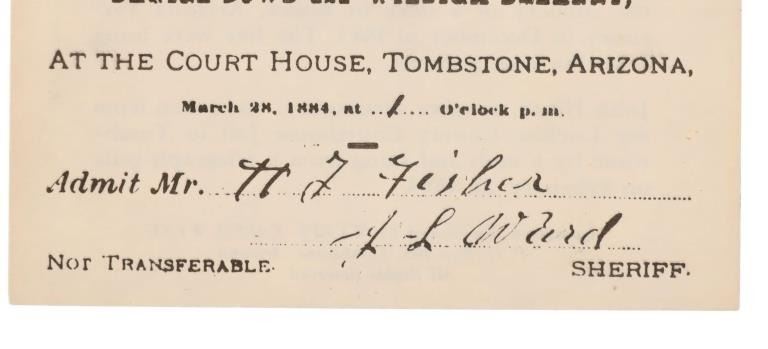 AT THE COURT HOUSE, TOMBSTONE, ARIZONA,
March 28, 1884, at 1 O'clock p. m.
Admit Mr. H F Fisher
J L Ward
NOT TRANSFERABLE. SHERIFF.